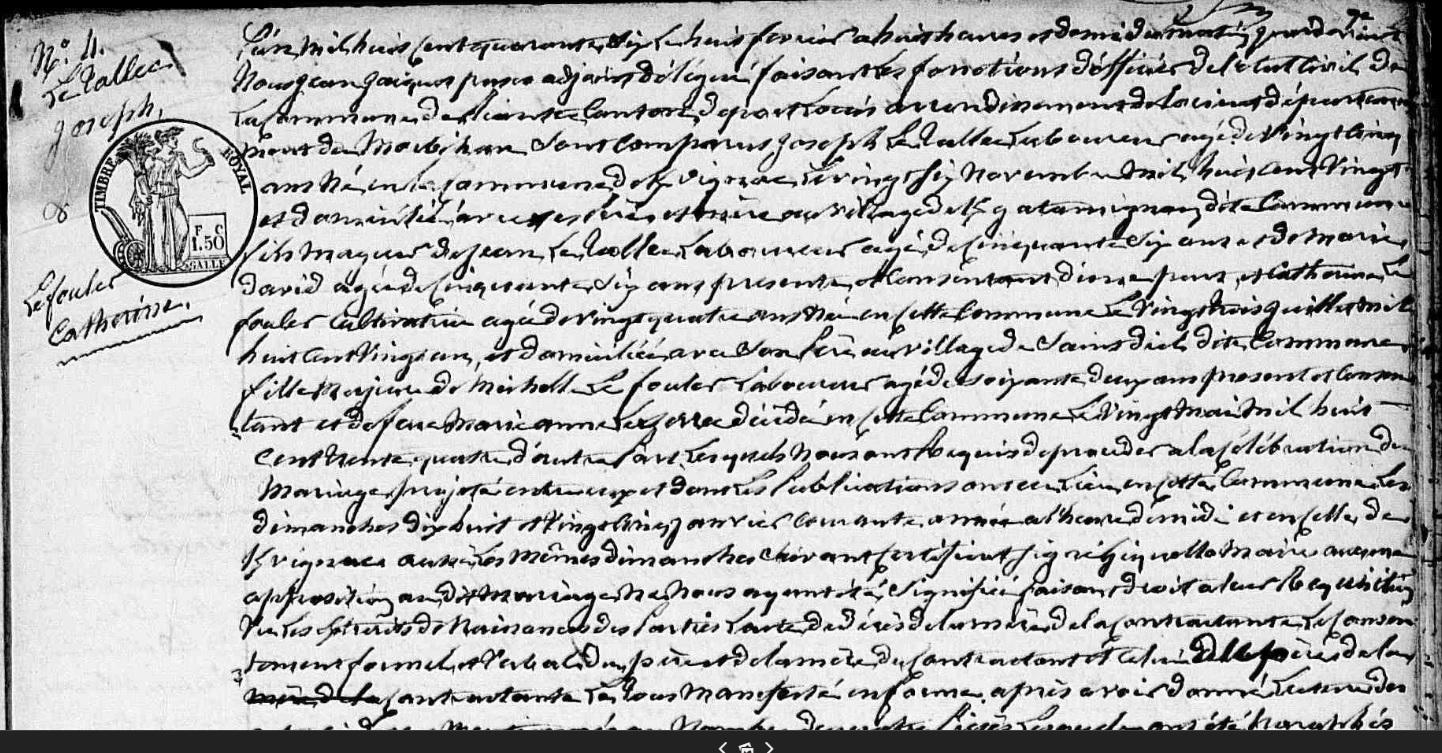 N° 4.
Le Tallec
Joseph,
&
Le fouler
Catherine.
TIMBRE ROYAL
F C
1.50
GALLE
L'an mil huit cent quarante six le huit fevrier a huit heures et demi du matin pardevant
Nous jean jacques adjoint délégué faisant les fonctions d'officier de l'état Civil de
la Commune de Canton de port Louis arrondissement de Lorient départe
ment du Morbihan Sont Comparus joseph Le Tallec Laboureur agé de Vingt Cinq
ans Né en la Commune de Kvignac le vingt six Novembre mil huit cent Vingt
et domicilié avec ses père et mère au village de dite Commune
fils Majeur de jean Le Tallec Laboureur agé de Cinquante Six ans et de Marie
david agée de Cinquante Six ans presents et Consentant d'une part, et Catherine Le
fouler Cultivatrice agée de vingt quatre ans Née en cette Commune le Vingt trois juillet mil
huit cent Vingt un, et domiciliée avec Son père au village de dite Commune
fille Majeure de Le fouler Laboureur agé de soixante deux ans present et Consen
tant et de feue Marie anne décédée en cette Commune le Vingt Mai Mil huit
Cent trente quatre d'autre part, lesquels Nous ont Requis de proceder a la Célébration du
Mariage projeté entre eux et dont les Publications ont eu lieu en cette Commune les
dimanches dix huit et Vingt Cinq janvier courante année a l'heure de midi et en celle de
Kvignac aussi les mêmes dimanches Suivant Certificat Signé Maire aucune
opposition au dit Mariage Ne Nous ayant été Signifiée faisant droit a leur Requisition
Vu les Extraits de Naissances des Parties l'acte de décès de la mère de la Contractante le Consen
tement formel et Verbal du père et de la mère du Contractant et Celui du père de la
Contractante le tout Manifesté en forme, après avoir donné lecture des